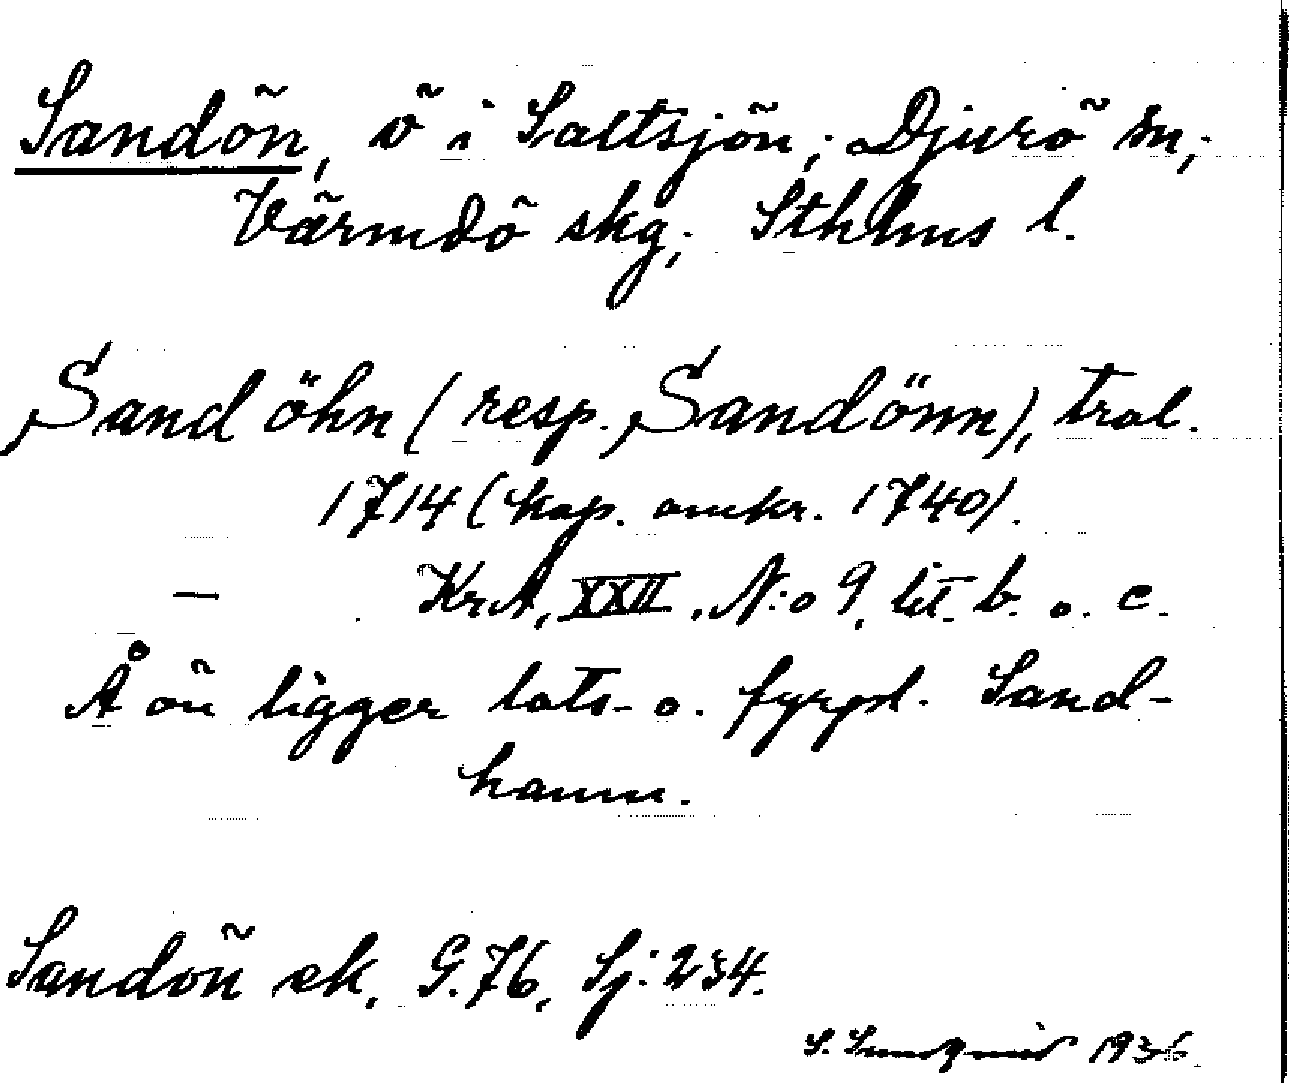 Sandön, ö i Saltsjön; Djurö sn;
Värmdö skg; Sthlms l.
Sand öhn (resp. Sandönn),
1714 (kop. omkr. 1740).
— KrA, XXII, N:o 9, lit. b. o. c.
Å ön ligger lots- o. fyrpl. Sand-
hamn.
Sandön ek. G. 76, Sj: 234.
S. Lundqvist 1936.